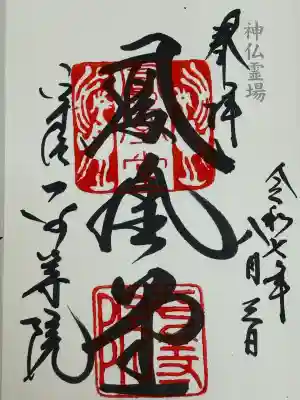 神仏霊場
奉拝
令和七年
八月三日
鳳凰堂
平等院